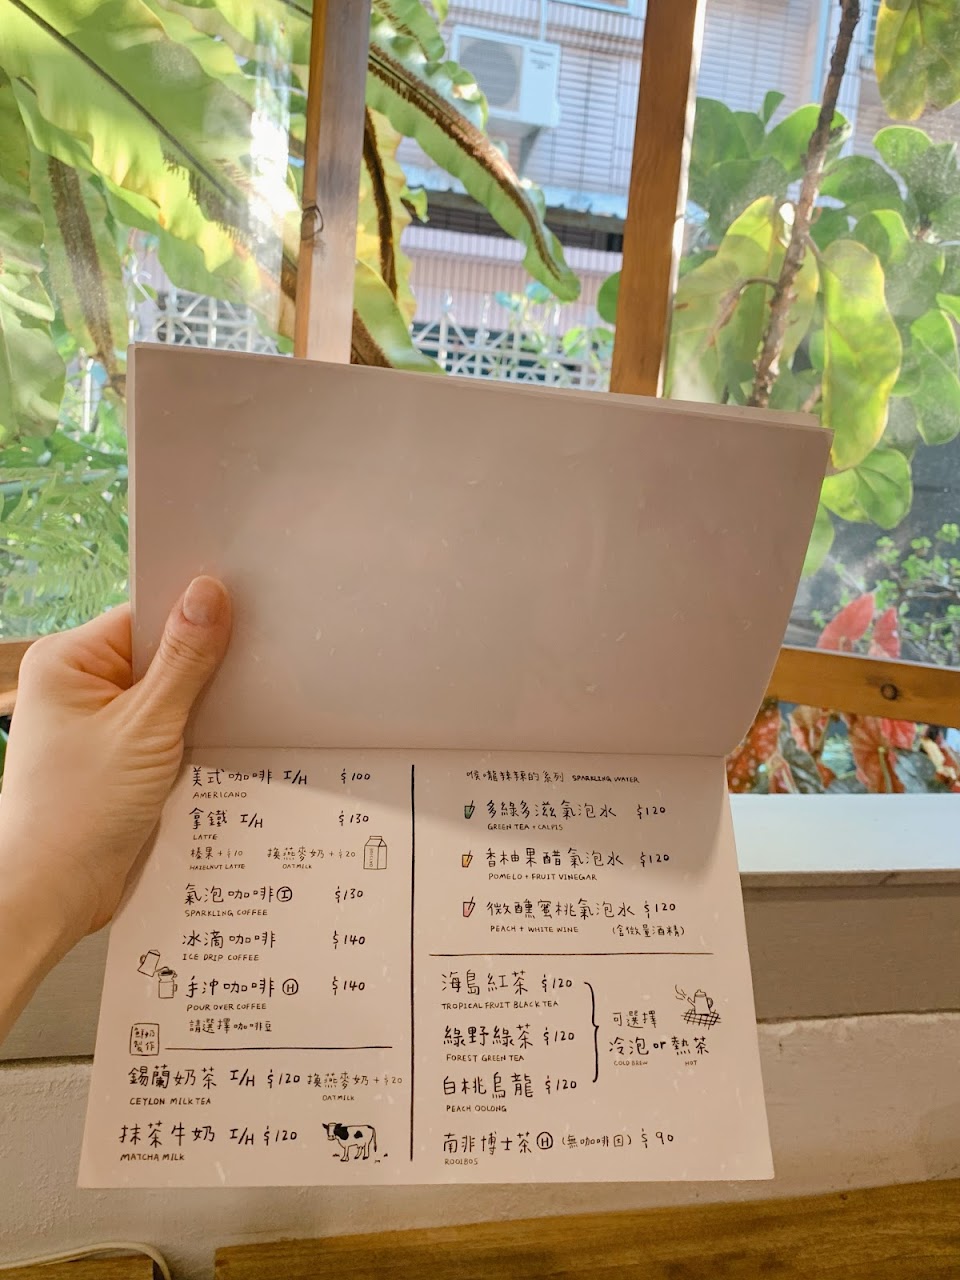 美式咖啡 I/H $100
AMERICANO
拿鐵 I/H $130
LATTE
榛果+$10 換燕麥奶+$20
HAZELNUT LATTE OATMILK
氣泡咖啡 Ⓘ $130
SPARKLING COFFEE
冰滴咖啡 $140
ICE DRIP COFFEE
手沖咖啡 Ⓗ $140
POUR OVER COFFEE
請選擇咖啡豆
鮮奶
製作
錫蘭奶茶 I/H $120 換燕麥奶+$20
CEYLON MILK TEA OATMILK
抹茶牛奶 I/H $120
MATCHA MILK
喉嚨辣辣的系列 SPARKLING WATER
多綠多滋氣泡水 $120
GREEN TEA + CALPIS
香柚果醋氣泡水 $120
POMELO + FRUIT VINEGAR
微醺蜜桃氣泡水 $120
PEACH + WHITE WINE (含微量酒精)
海島紅茶 $120
TROPICAL FRUIT BLACK TEA
綠野綠茶 $120
FOREST GREEN TEA
白桃烏龍 $120
PEACH OOLONG
可選擇
冷泡 or 熱茶
COLD BREW HOT
南非博士茶 Ⓗ (無咖啡因) $90
ROOIBOS